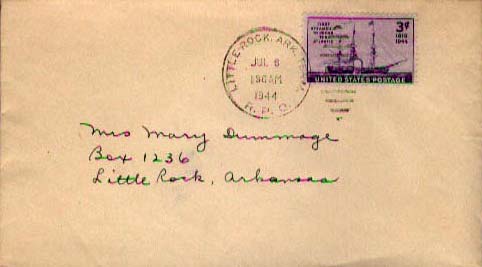 LITTLE ROCK, ARK.
JUL 6
1944
R. P. O.
FIRST
STEAMSHIP
TO CROSS
THE
ATLANTIC
3¢
1819
1944
UNITED STATES POSTAGE
Mrs Mary Dummage
Box 1236
Little Rock, Arkansas